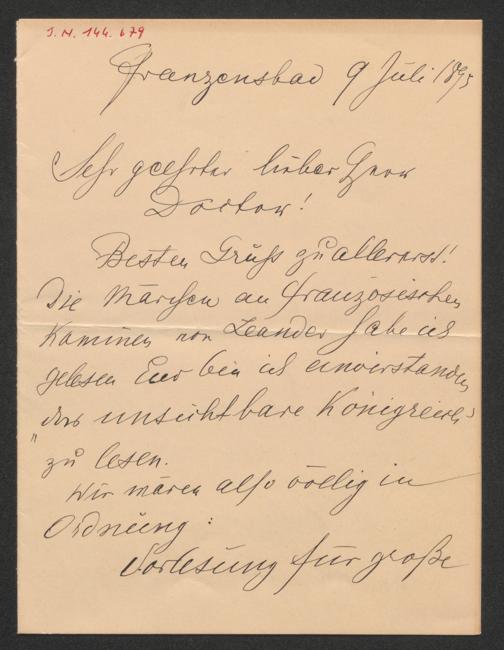 J.N. 144.679
Franzensbad 9 Juli 1895
Sehr geehrter lieber Herr
Doctor!
Besten Gruß zuallererst!
Die Märchen an französischen
Kaminen von Leander habe ich
gelesen bin ich einverstanden
"das unsichtbare Königreich"
zu lesen.
Wir wären also völlig in
Ordnung:
Vorlesung für große